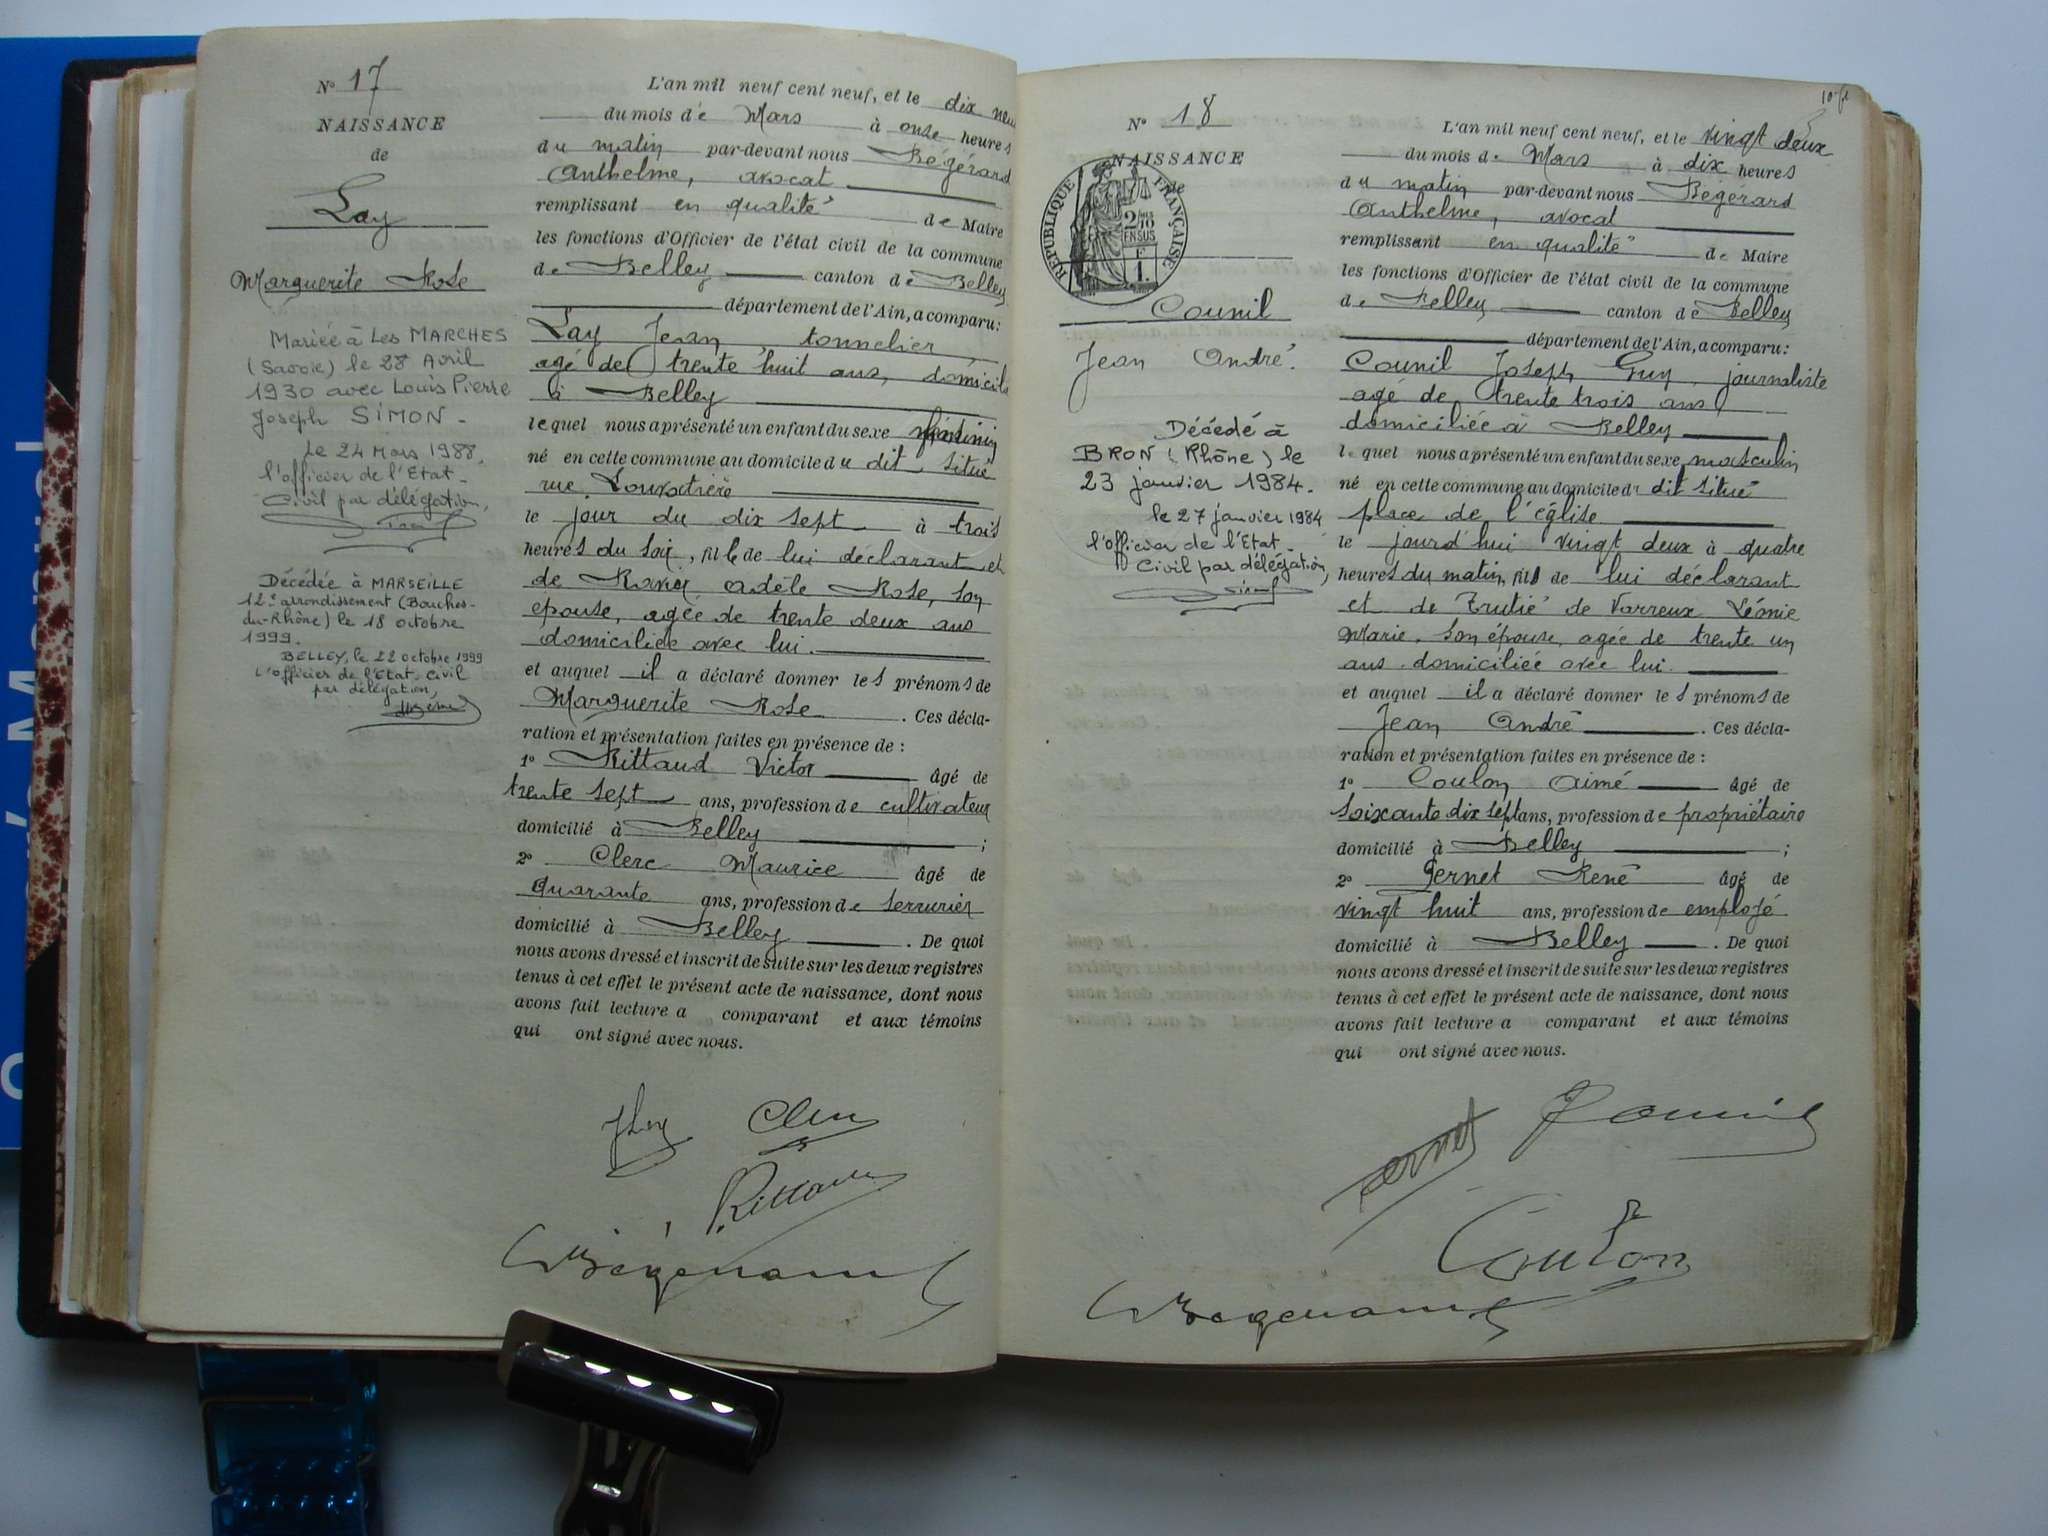 N° 17
NAISSANCE
de
Lay
Marguerite Rose
Mariée à Les MARCHES
(Savoie) le 28 Avril
1930 avec Louis Pierre
Joseph SIMON -
Le 24 Mars 1988,
l'officier de l'Etat-
Civil par délégation,
Décédée à MARSEILLE
12e arrondissement (Bouches-
du-Rhône) le 18 octobre
1999.
BELLEY, le 22 octobre 1999
L'officier de l'Etat Civil
par délégation,
L'an mil neuf cent neuf, et le dix neuf
du mois de Mars à onze heures
du matin par-devant nous Bégérard
Anthelme, avocat
remplissant en qualité de Maire
les fonctions d'Officier de l'état civil de la commune
de Belley canton de Belley
département de l'Ain, a comparu:
Lay Jean, tonnelier,
agé de trente huit ans, domicilié
à Belley
lequel nous a présenté un enfant du sexe
né en cette commune au domicile du dit situé
rue
le jour du dix sept à trois
heures du soir, fille de lui déclarant et
de Adèle Rose, son
épouse, agée de trente deux ans
domiciliée avec lui.
et auquel il a déclaré donner les prénoms de
Marguerite Rose. Ces décla-
ration et présentation faites en présence de :
1° Rittaud Victor âgé de
trente sept ans, profession de cultivateur
domicilié à Belley ;
2° Clerc Maurice âgé de
quarante ans, profession de serrurier
domicilié à Belley. De quoi
nous avons dressé et inscrit de suite sur les deux registres
tenus à cet effet le présent acte de naissance, dont nous
avons fait lecture a comparant et aux témoins
qui ont signé avec nous.
JLay Clerc
Rittaud
Bégérard
10 fl
N° 18
NAISSANCE
de
RÉPUBLIQUE FRANÇAISE
2/10
EN SUS
F
1.
Counil
Jean André.
Décédé à
BRON (Rhône) le
23 janvier 1984.
le 27 janvier 1984
l'officier de l'Etat-
Civil par délégation,
L'an mil neuf cent neuf, et le vingt deux
du mois de Mars à dix heures
du matin par-devant nous Bégérard
Anthelme, avocat
remplissant en qualité de Maire
les fonctions d'Officier de l'état civil de la commune
de Belley canton de Belley
département de l'Ain, a comparu:
Counil Joseph Guy, journaliste
agé de trente trois ans
domiciliée à Belley
lequel nous a présenté un enfant du sexe masculin
né en cette commune au domicile du dit situé
place de l'église
le jourd'hui vingt deux à quatre
heures du matin, fils de lui déclarant
et de Trutié de Varreux Léonie
Marie, son épouse, agée de trente un
ans domiciliée avec lui.
et auquel il a déclaré donner les prénoms de
Jean André. Ces décla-
ration et présentation faites en présence de :
1° Coulon Aimé âgé de
soixante dix sept ans, profession de propriétaire
domicilié à Belley ;
2° Pernet René âgé de
vingt huit ans, profession de employé
domicilié à Belley. De quoi
nous avons dressé et inscrit de suite sur les deux registres
tenus à cet effet le présent acte de naissance, dont nous
avons fait lecture a comparant et aux témoins
qui ont signé avec nous.
Pernet Counil
Coulon
Bégérard